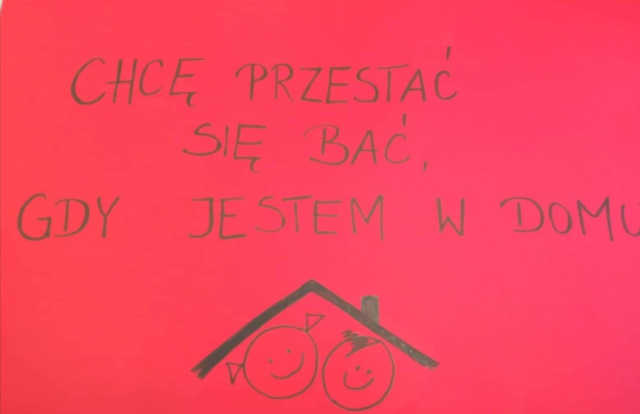 CHCĘ PRZESTAĆ
SIĘ BAĆ,
GDY JESTEM W DOMU